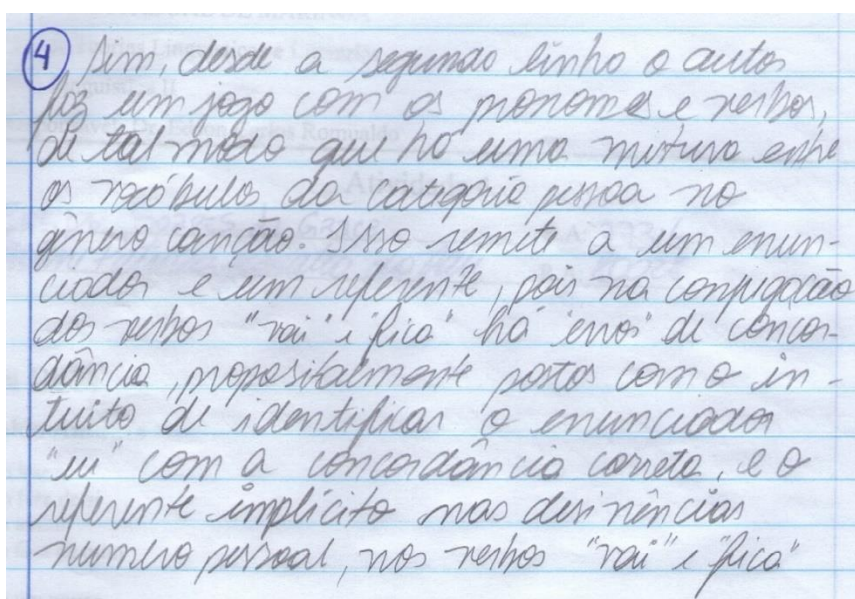 4 Sim, desde a segunda linha o autor
faz um jogo com os pronomes e verbos,
de tal modo que há uma mistura entre
os vocábulos da categoria pessoa no
gênero canção. Isso remete a um enun-
ciador e um referente, pois na conjugação
dos verbos "vai" e "fica" há "erros" de concor-
dância, propositalmente postos com o in-
tuito de identificar o enunciador
"eu" com a concordância correta, e o
referente implícito nas desinências
número pessoal, nos verbos "vai" e "fica"
Romualdo